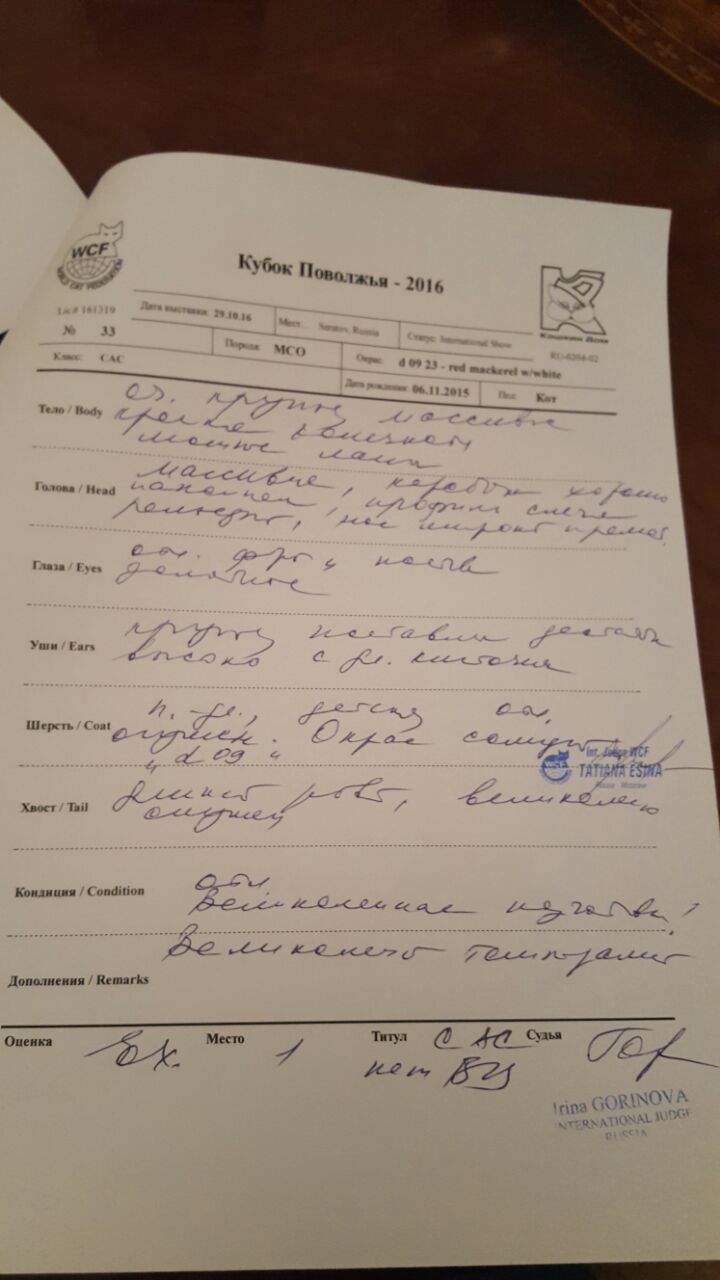 WCF
WORLD CAT FEDERATION
Кубок Поволжья - 2016
Кошкин Дом
Lic# 161319
Дата выставки: 29.10.16
Мест Saratov, Russia
Статус: International Show
RU-0204-02
№ 33
Порода: MCO
Окрас: d 09 23 - red mackerel w/white
Класс: CAC
Дата рождения: 06.11.2015
Пол: Кот
Тело / Body
оч. крупный массивн
крепкие конечности
мощные лапы
Голова / Head
массивная, коробка хорошо
профиль слегка
нос широкий прямой
Глаза / Eyes
отл. формы и постава
золотистые
Уши / Ears
крупные поставлены достаточно
высоко с дл. кисточками
Шерсть / Coat
п. дл., отл.
опушен. Окрас
"d 09"
Int. Judge WCF
TATIANA ESINA
Russia Moscow
Хвост / Tail
великолепно
опушен
Кондиция / Condition
отл.
Великолепная подготовка!
Великолепный темперамент
Дополнения / Remarks
Оценка Ex. Место 1 Титул CAC Судья Гор
нет ВЦ
Irina GORINOVA
INTERNATIONAL JUDGE
RUSSIA